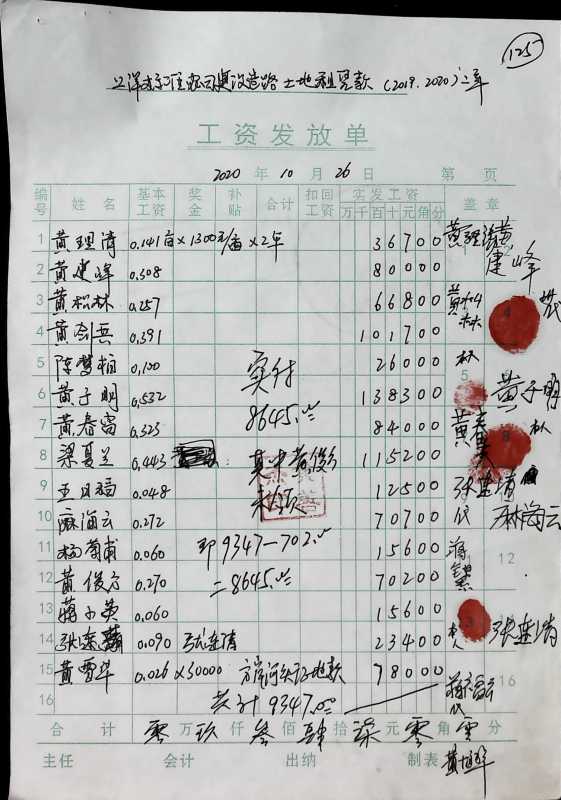 125
土地租罢款（2019.2020）二年
工资发放单
2020 年 10 月 26 日 第 页
编号 姓名 基本工资 奖金 补贴 合计 扣回工资 实发工资 万千百十元角分 盖章
1 黄理清 0.141亩×1300元/亩×2年 36700
2 黄建峰 0.308 80000 建峰
3 黄松林 0.257 66800
4 黄剑兵 0.391 101700
5 陈梦柏 0.100 26000
6 黄子明 0.532 实付 138300 黄子明
7 黄春富 0.323 8645.00 84000
8 梁夏兰 0.443 其中黄俊方 115200
9 王月福 0.048 未领 12500
10 麻海云 0.272 70700 麻海云
11 杨菊甫 0.060 即9347-702.00 15600
12 黄俊方 0.270 =8645.00 70200 12
13 蒋小英 0.060 15600
14 0.090 张莲清 23400 本人 张莲清
15 黄雪华 0.026×30000 78000
16 共计9347.00 16
合计 零万玖仟叁佰肆拾柒元零角零分
主任 会计 出纳 制表